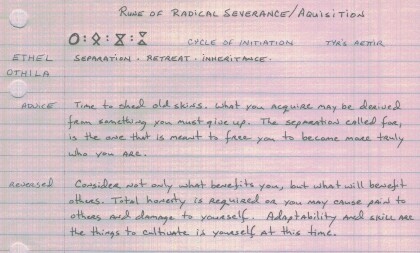 Rune of Radical Severance/Aquisition
Cycle of Initiation Tyr's Aettir
Ethel Separation · Retreat · Inheritance ·
Othila
Advice Time to shed old skins. What you acquire may be derived
from something you must give up. The separation called for,
is the one that is meant to free you to become more truly
who you are.
Reversed Consider not only what benefits you, but what will benefit
others. Total honesty is required or you may cause pain to
others and damage to yourself. Adaptability and skill are
the things to cultivate in yourself at this time.